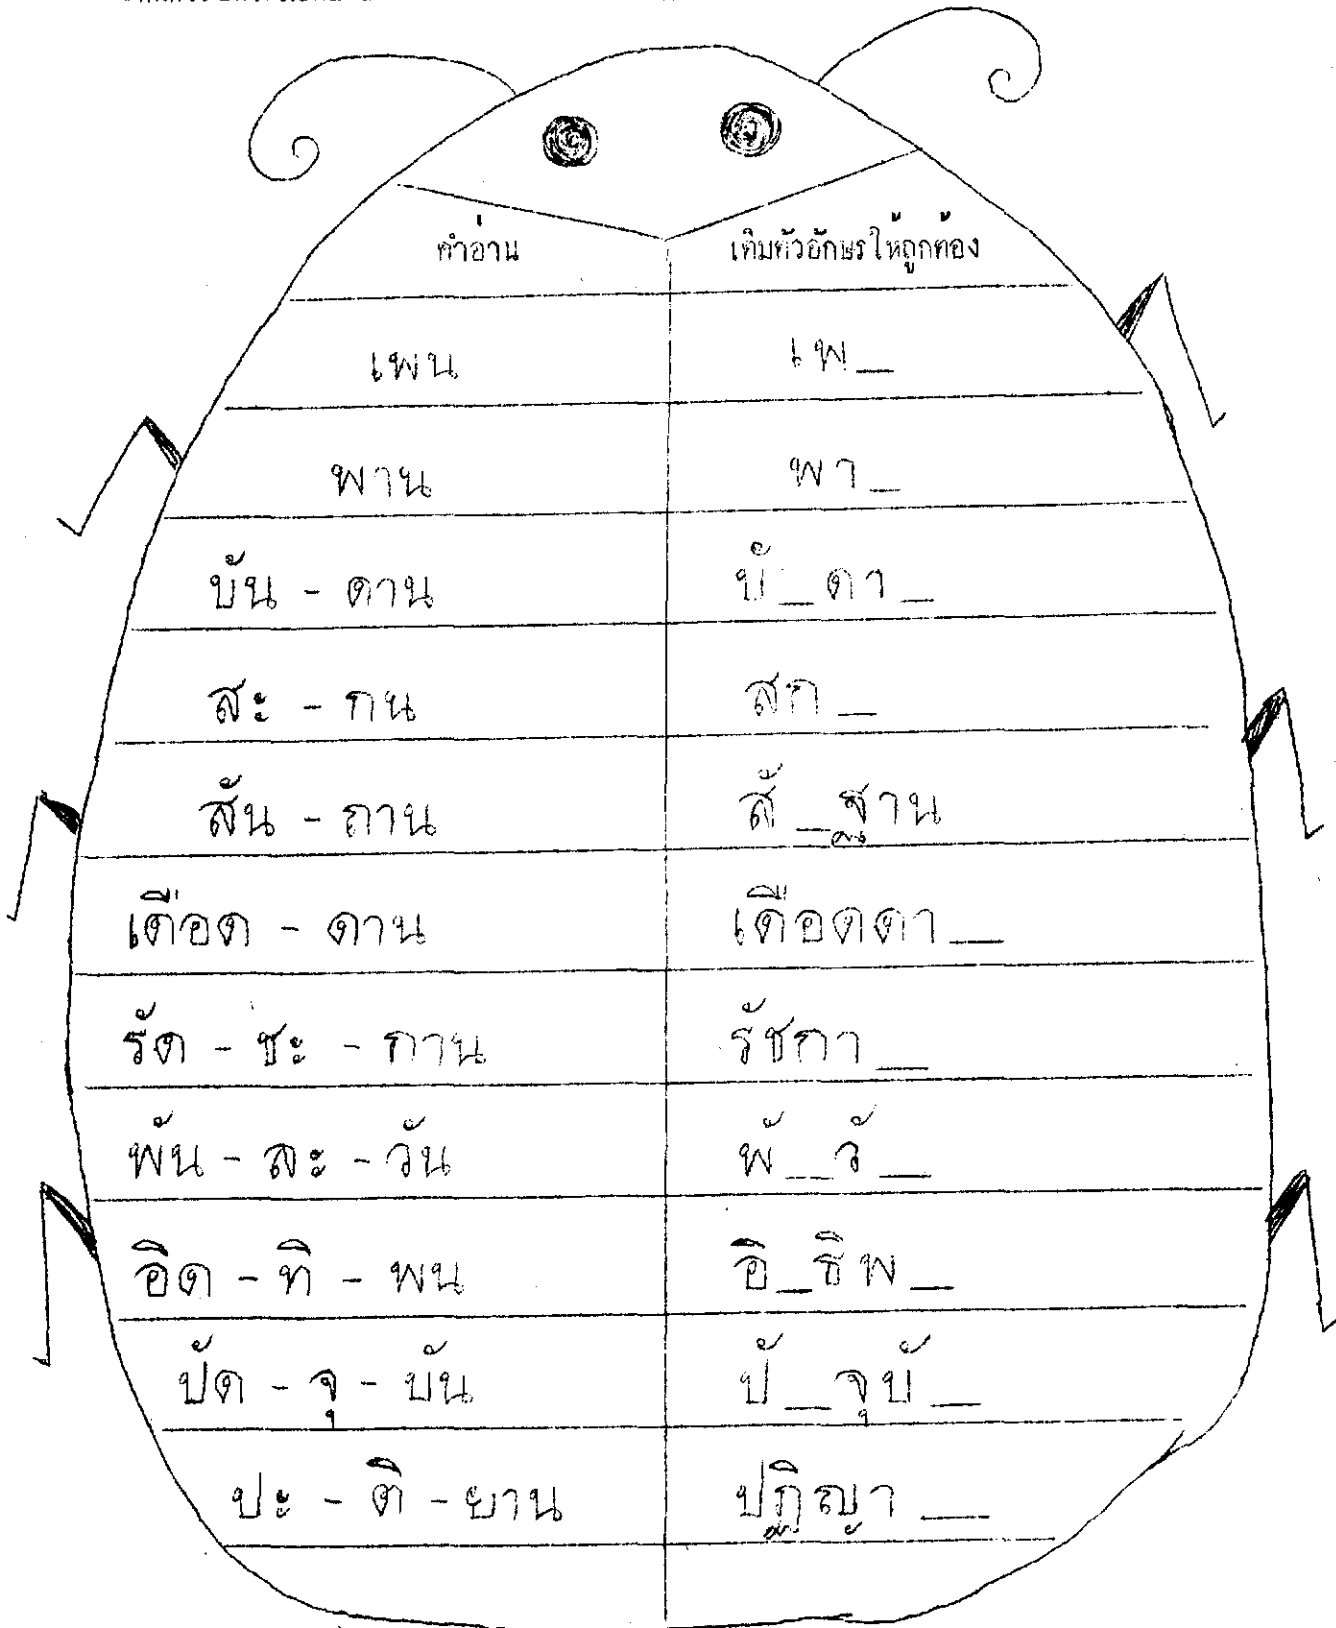 คำอ่าน เติมตัวอักษรให้ถูกต้อง
เพน เพ_
พาน พา_
บัน - ดาน บั_ดา_
สะ - กน สก_
สัน - ถาน สั_ฐาน
เดือด - ดาน เดือดดา_
รัด - ชะ - กาน รัชกา_
พัน - ละ - วัน พั_วั_
อิด - ทิ - พน อิ_ธิพ_
ปัด - จุ - บัน ปั_จุบั_
ปะ - ติ - ยาน ปฏิญา_